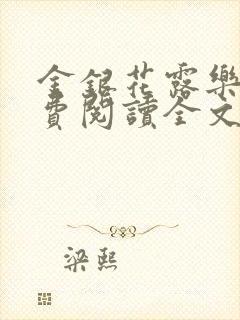 金銀花露樂
費閱讀全文
梁熙